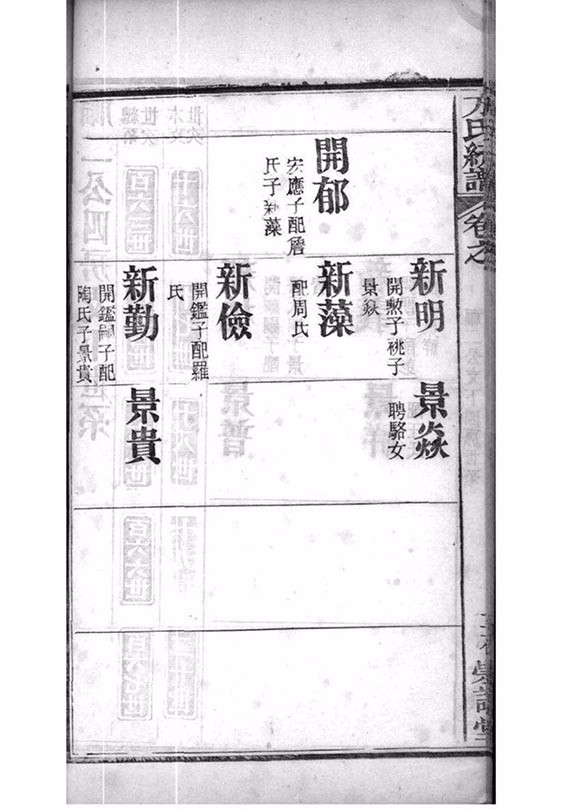 方氏統譜 卷之
開郁
安應子配詹
氏子新藻
新明
開勲子祧子
景焱
新藻
配周氏
新儉
開鑑子配羅
氏
新勤
開鑑嗣子配
陶氏子景貴
景焱
聘駱女
景貴